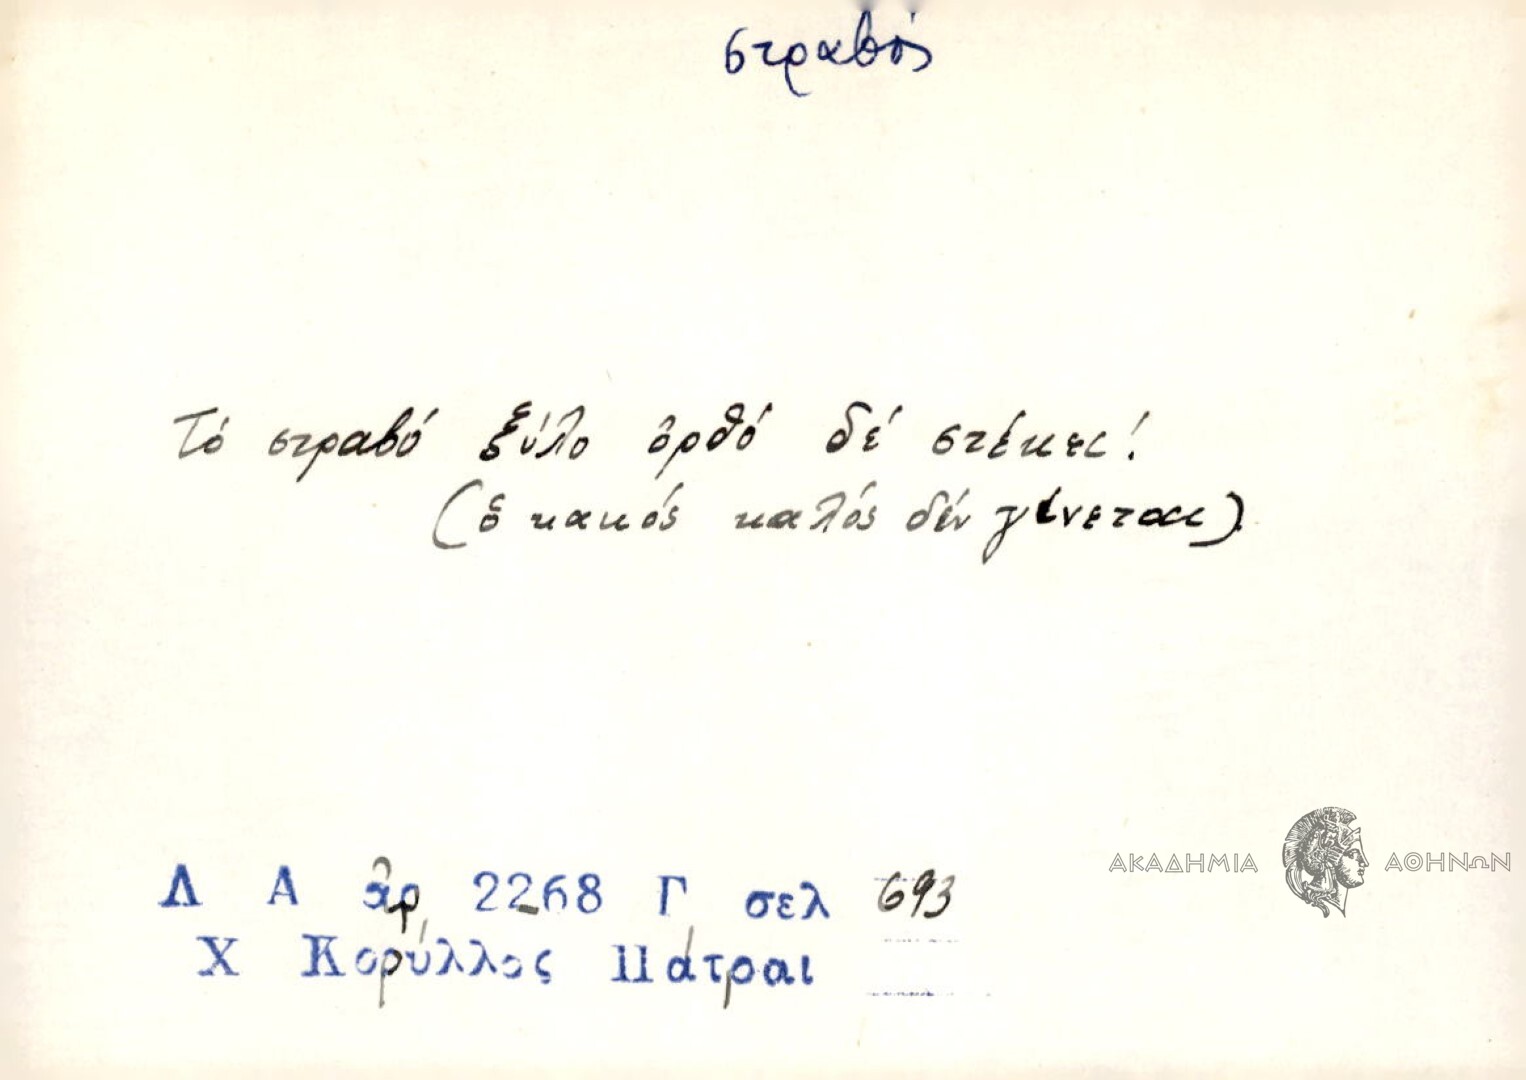 στραβός
Τό στραβό ξύλο ὀρθό δέ στέκει!
(ὁ κακός καλός δέν γίνεται)
Λ Α ἀρ. 2268 Γ σελ 693
Χ Κορύλλος Πάτραι
ΑΚΑΔΗΜΙΑ ΑΘΗΝΩΝ